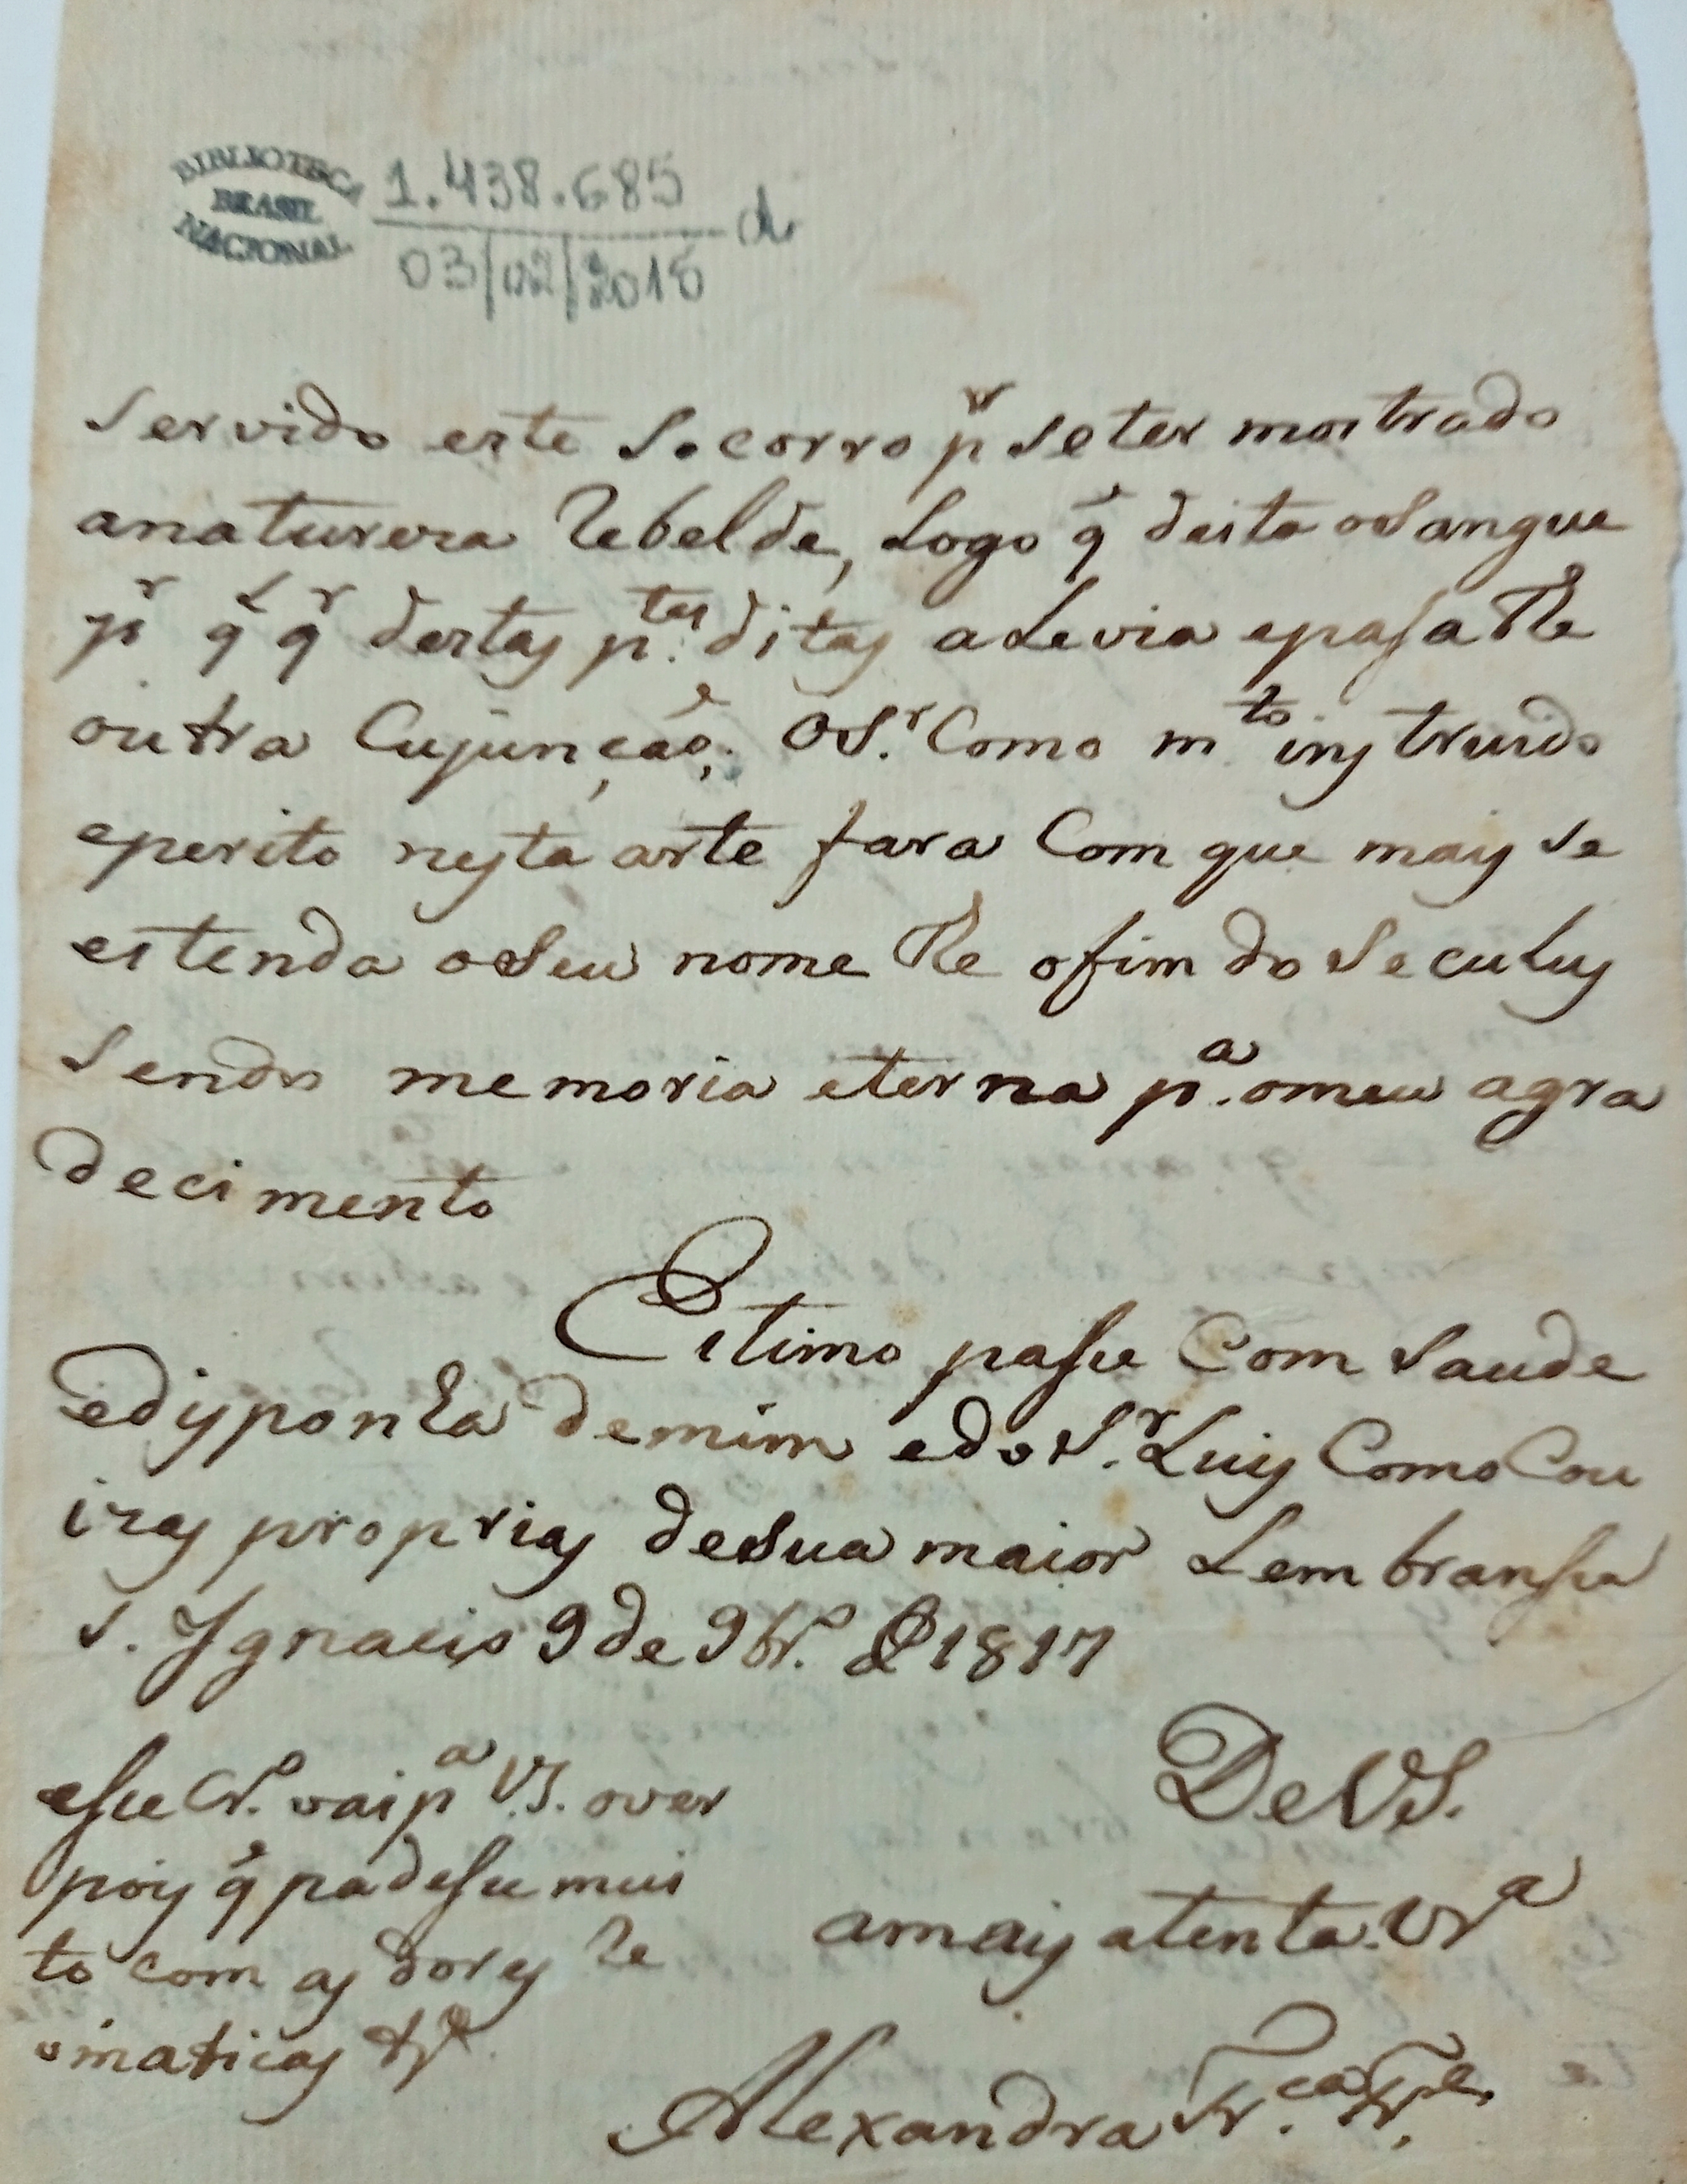 BIBLIOTECA
BRASIL
NACIONAL
1.438.685
03/02/2015
servido este socorro pr se ter mostrado
anaturera rebelde, Logo q̃ deita osangue
pr ql qr destas ptes ditas alevia epasa the
outra Cujunção. O Sr Como mto instruido
eperito nesta arte fara Com que mais se
estenda o Seu nome the ofim do Seculus
Sendo memoria eterna pa. omeu agra
decimento
Estimo passe Com Saude
edisponha demim edo Sr. Luis Como Cou
izas proprias deSua maior Lembransa
S. Ignacio 9 de 9br.o de 1817
esse vai pa VS. over
pois q̃ padese mui
to com as dores re
omaticas
DeVS.
amais atenta Vra
Alexandra Fr.ca